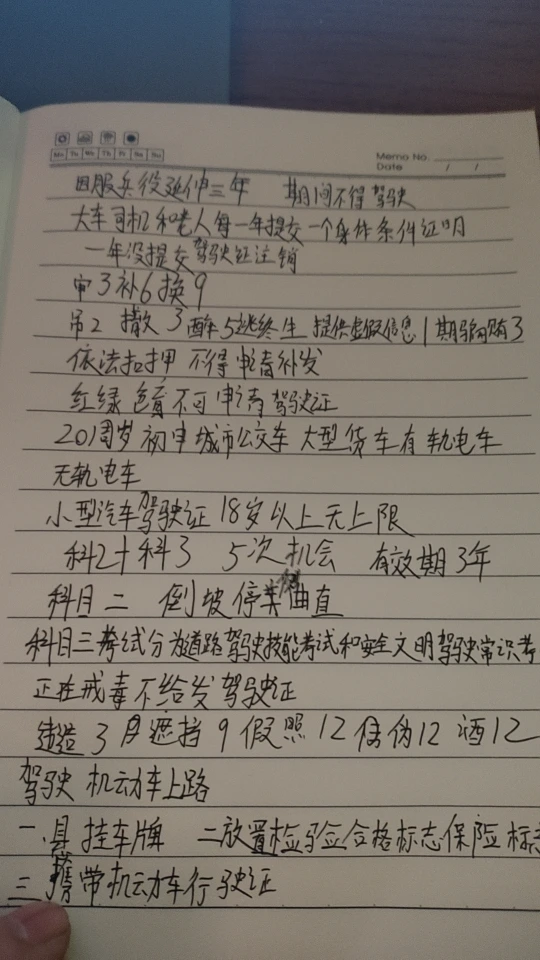 Mo Tu We Th Fr Sa Su
Memo No.
Date / /
因服兵役延伸三年 期间不得驾驶
大车司机和老人每一年提交一个身体条件证明
一年没提交驾驶证注销
审3补6换9
吊2 撤3醉5逃终生 提供虚假信息1期骗购贿3
依法扣押 不得申请补发
红绿色盲不可申请驾驶证
20周岁初申城市公交车 大型货车有轨电车
无轨电车
小型汽车驾驶证18岁以上无上限
科2+科3 5次机会 有效期3年
科目二 倒坡停 曲直
科目三考试分为道路驾驶技能考试和安全文明驾驶常识考
正在戒毒不给发驾驶证
3 遮挡9假照12伪12酒12
驾驶机动车上路
一.县挂车牌 二放置检验合格标志保险标志
三携带机动车行驶证